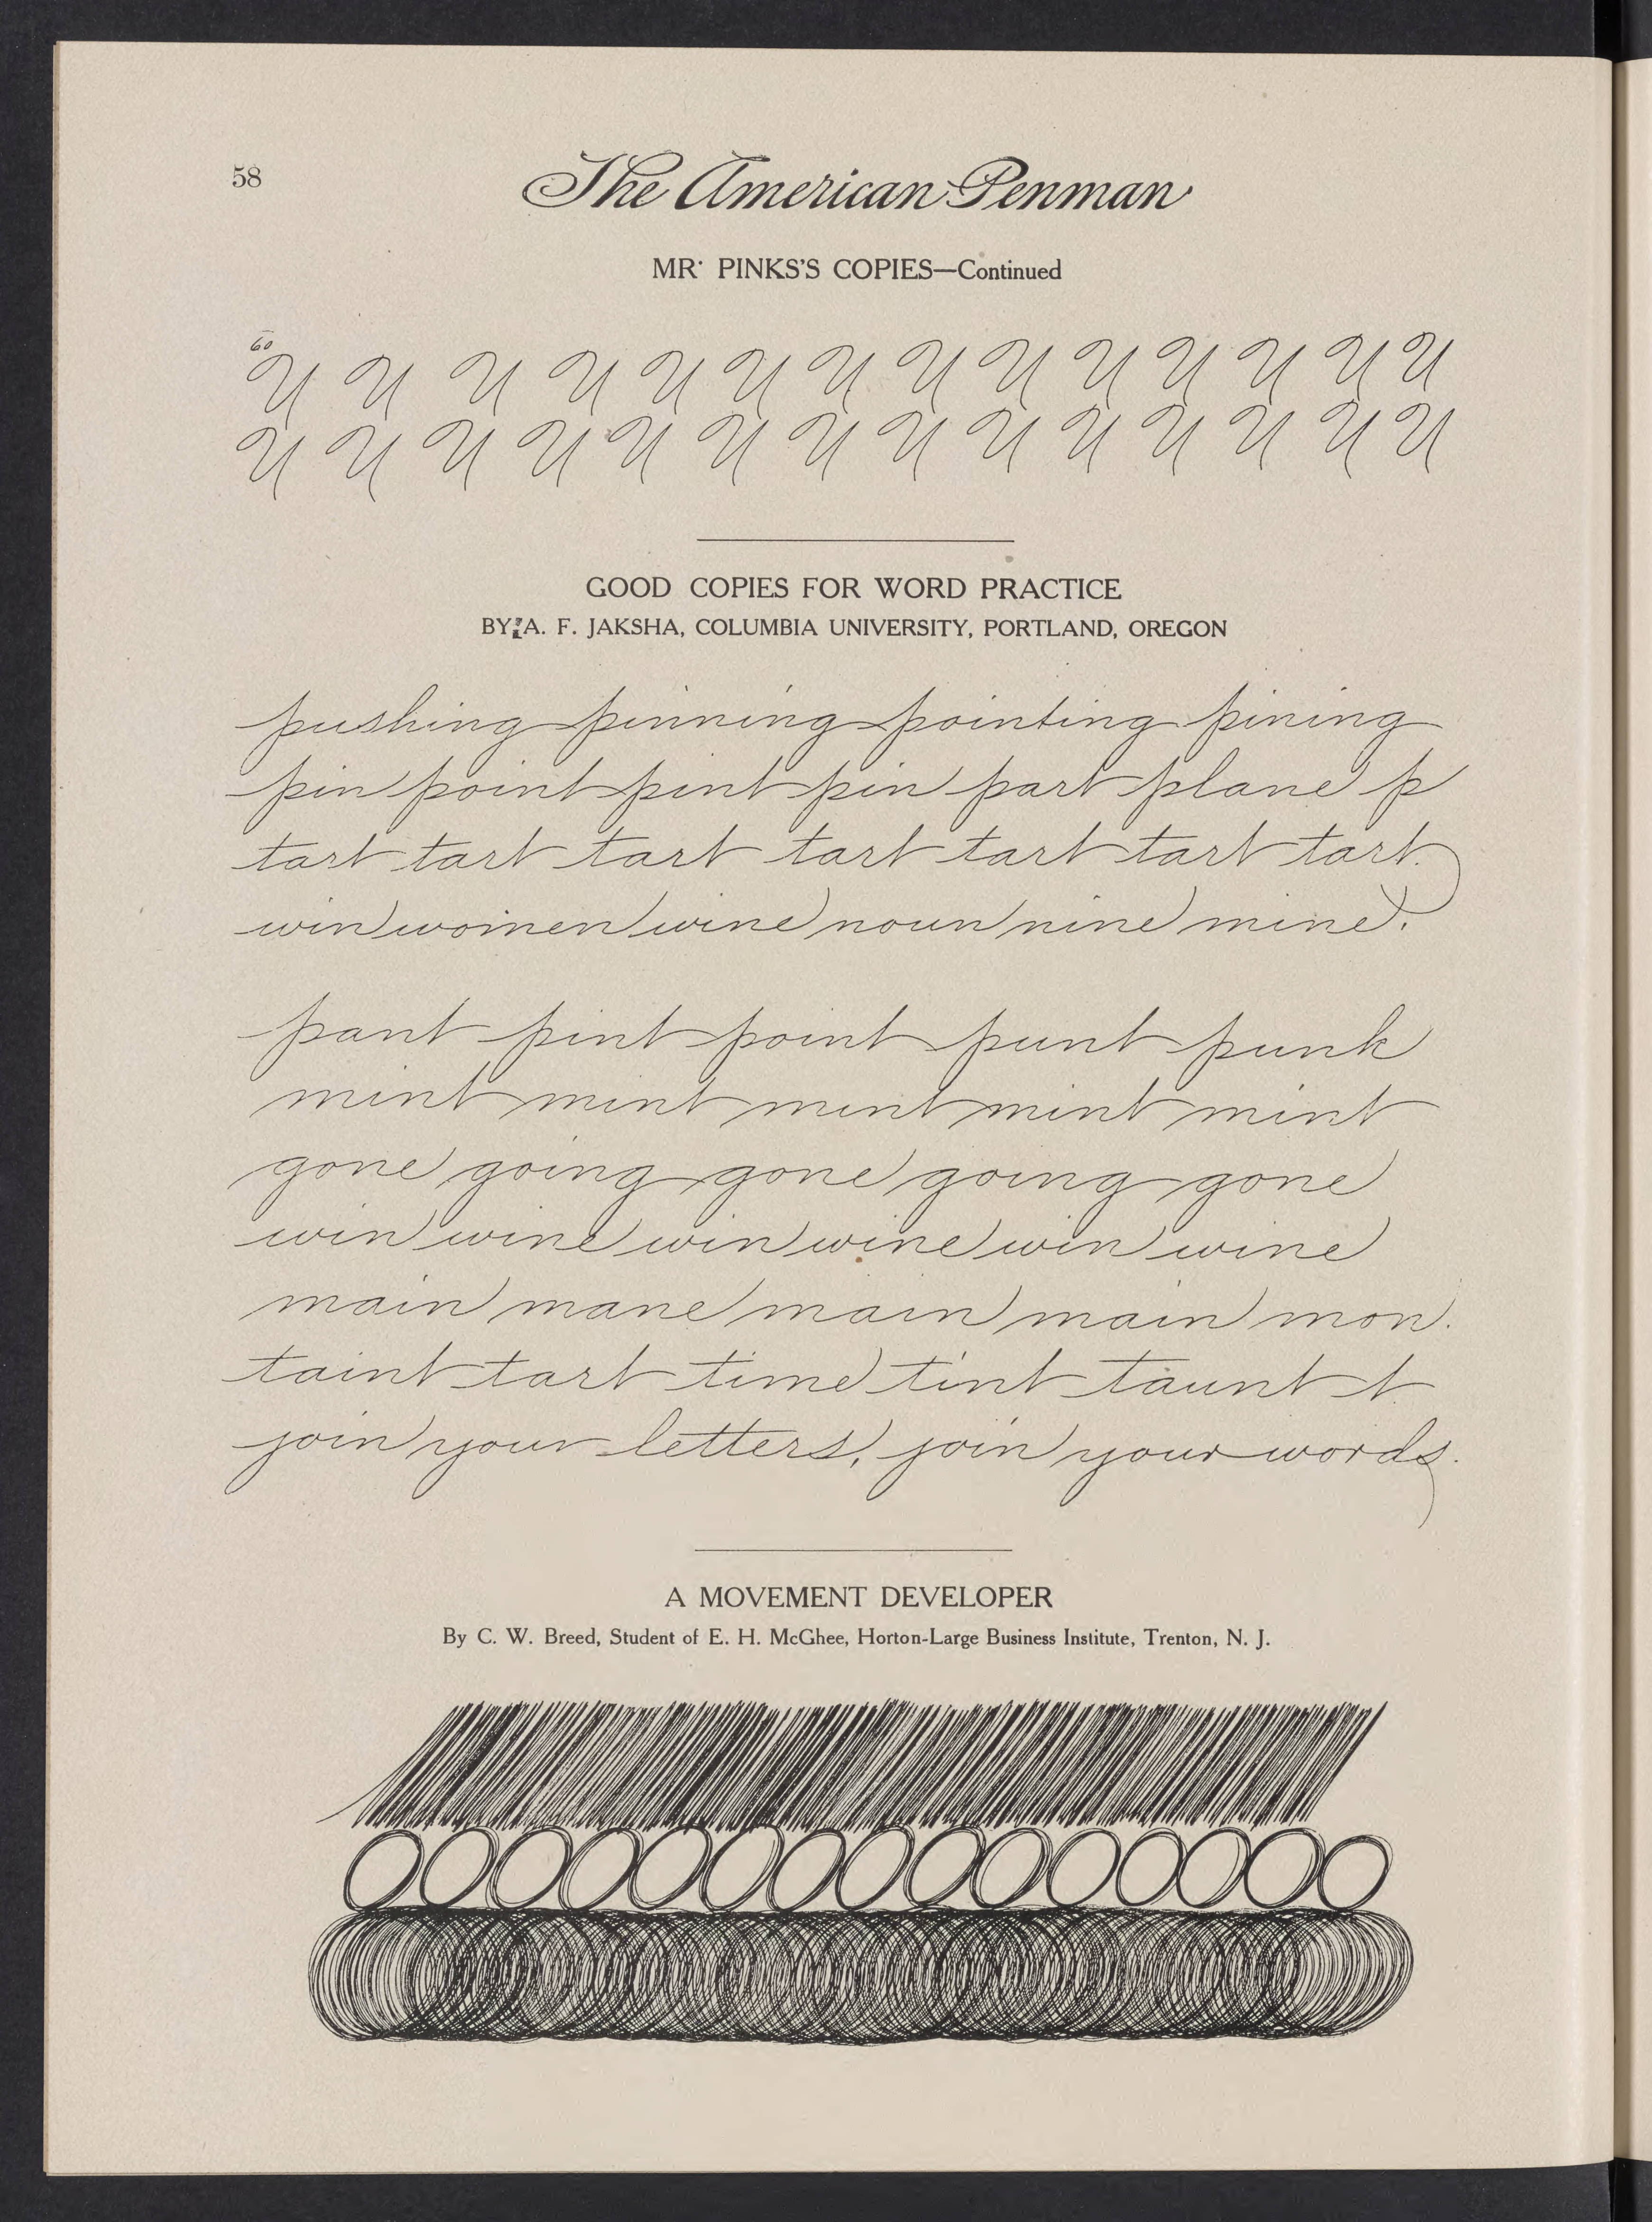 58
The American Penman
MR. PINKS'S COPIES—Continued
60
Y Y Y Y Y Y Y Y Y Y Y Y Y Y
Y Y Y Y Y Y Y Y Y Y Y Y Y Y
GOOD COPIES FOR WORD PRACTICE
BY A. F. JAKSHA, COLUMBIA UNIVERSITY, PORTLAND, OREGON
pushing pinning pointing pining
pin point pint pin part plane p
tart tart tart tart tart tart tart.
win women wine noun nine mine.
pant pint point punt punk
mint mint mint mint mint
gone going gone going gone
win wine win wine win wine
main mane main main mon.
taint tart time tint taunt t
join your letters, join your words.
A MOVEMENT DEVELOPER
By C. W. Breed, Student of E. H. McGhee, Horton-Large Business Institute, Trenton, N. J.